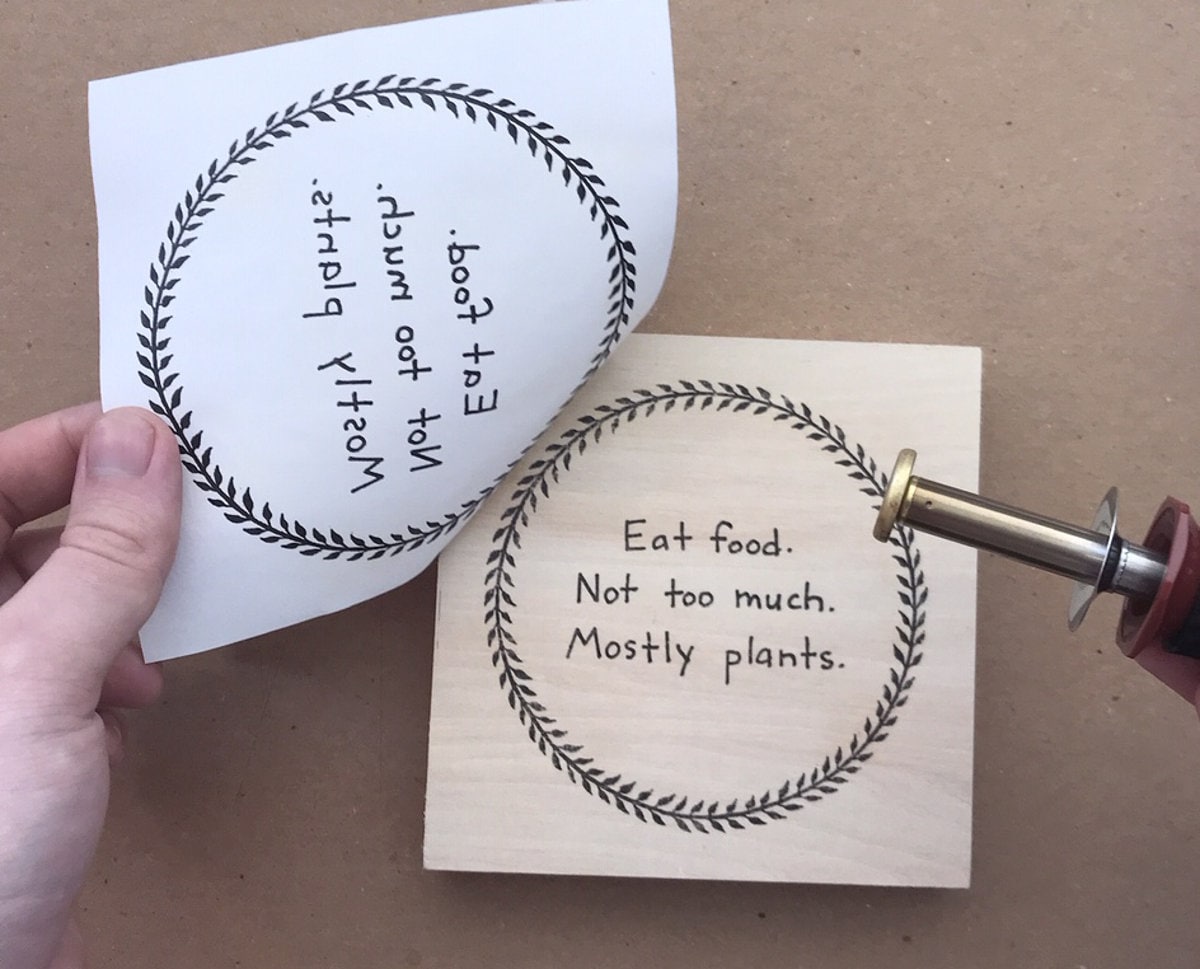 Eat food.
Not too much.
Mostly plants.
Eat food.
Not too much.
Mostly plants.